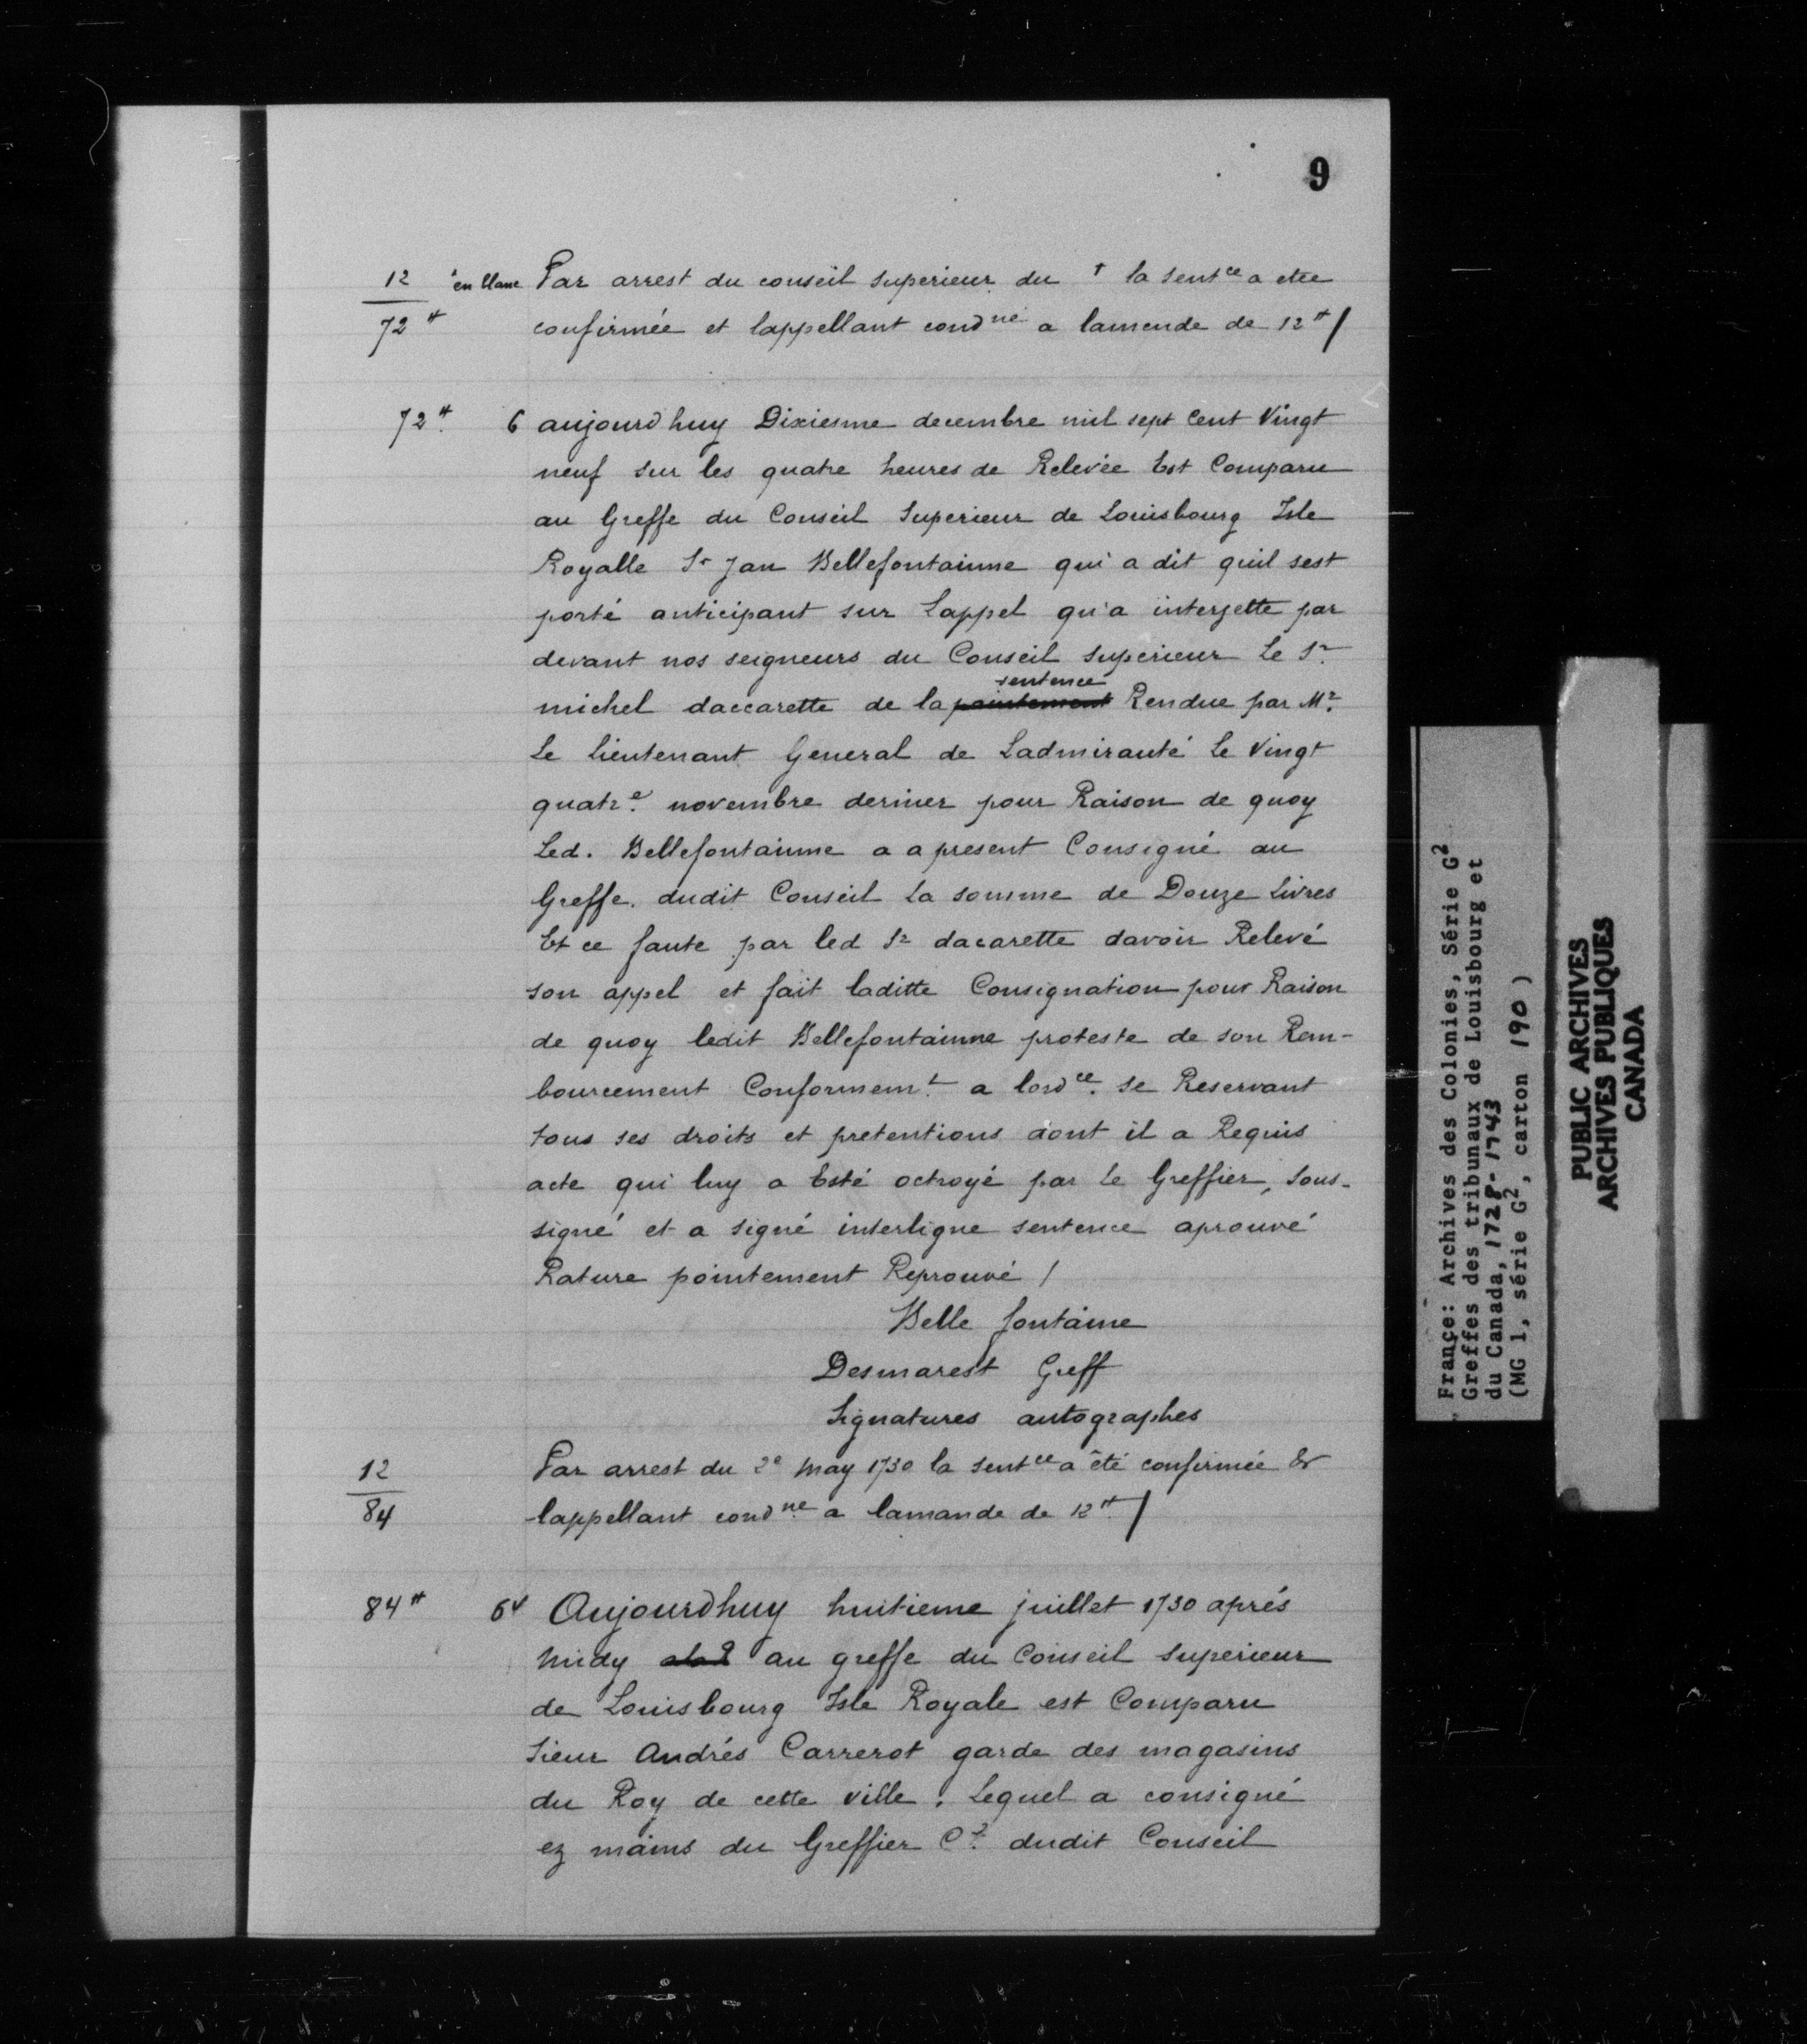 9
12 en blanc Par arrest du conseil superieur du † la sentce a etee
72# confirmée et lappellant condné a lamende de 12# /
72# 6 aujourdhuy Dixiesme decembre mil sept Cent Vingt
neuf sur les quatre heures de Relevée Est Comparu
au Greffe du Conseil Superieur de Louisbourg Isle
Royalle Sr Jan Bellefontainne qui a dit quil sest
porté anticipant sur Lappel qu'a interjette par
devant nos seigneurs du Conseil Superieur Le Sr
sentence
michel daccarette de la pointement Rendue par Mr
Le Lieutenant General de Ladmirauté Le Vingt
quatre novembre dernier pour Raison de quoy
Led. Bellefontainne a a present Consigné au
Greffe. dudit Conseil La somme de Douze Livres
Et ce faute par led Sr dacarette davoir Relevé
son appel et fait laditte Consignation pour Raison
de quoy ledit Bellefontainne proteste de son Ram-
bourcement Conformemt a lordce. se Reservant
tous ses droits et pretentions dont il a Requis
acte qui luy a Esté octroyé par Le Greffier, Sous-
signé et a signé interligne sentence aprouvé
Rature pointement Reprouvé /
Belle fontaine
Desmarest Greff
Signatures autographes
12 Par arrest du 2e may 1730 la sentce a été confirmée &
84 lappellant condne a lamande de 12# /
84# 6v Aujourdhuy huitieme juillet 1730 aprés
midy au greffe du Conseil superieur
de Louisbourg Isle Royale est Comparu
Sieur Andrés Carrerot garde des magasins
du Roy de cette ville. Lequel a consigné
ez mains du Greffier Cr. dudit Conseil
France: Archives des Colonies, Série G2
Greffes des tribunaux de Louisbourg et
du Canada, 1728-1743
(MG 1, série G2, carton 190)
PUBLIC ARCHIVES
ARCHIVES PUBLIQUES
CANADA